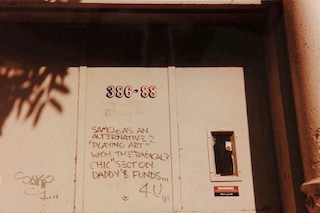 386-88
SAMO© AS AN
ALTERNATIVE 2
"PLAYING ART"
WITH THE "RADICAL?
CHIC" SECT ON
DADDY'$ FUNDS...
4 U